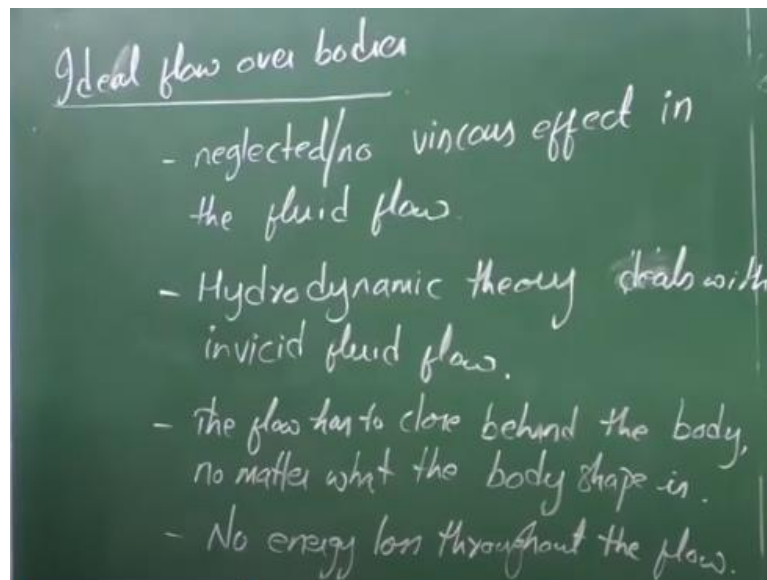 Ideal flow over bodies
- neglected/no viscous effect in
the fluid flow.
- Hydrodynamic theory deals with
invicid fluid flow.
- The flow has to close behind the body,
no matter what the body shape is.
- No energy loss throughout the flow.